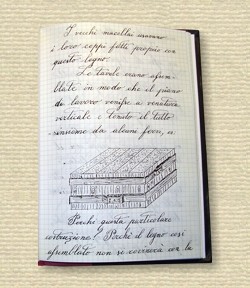 I vecchi macellai usavano
i loro ceppi fatti proprio con
questo legno.
Le tavole erano assem-
blate in modo che il piano
di lavoro venisse a venatura
verticale e tenuto il tutto
insieme da alcuni ferri, n.
Perché questa particolare
costruzione? Perché il legno così
assemblato non si rovinerà con la